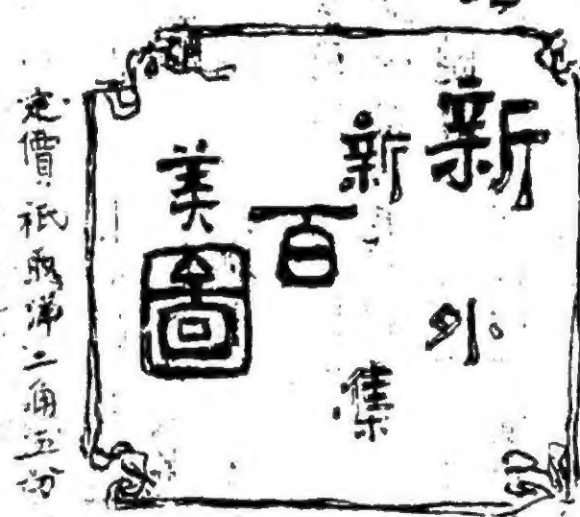 新新百美圖
外集
定價祇取洋二角五分